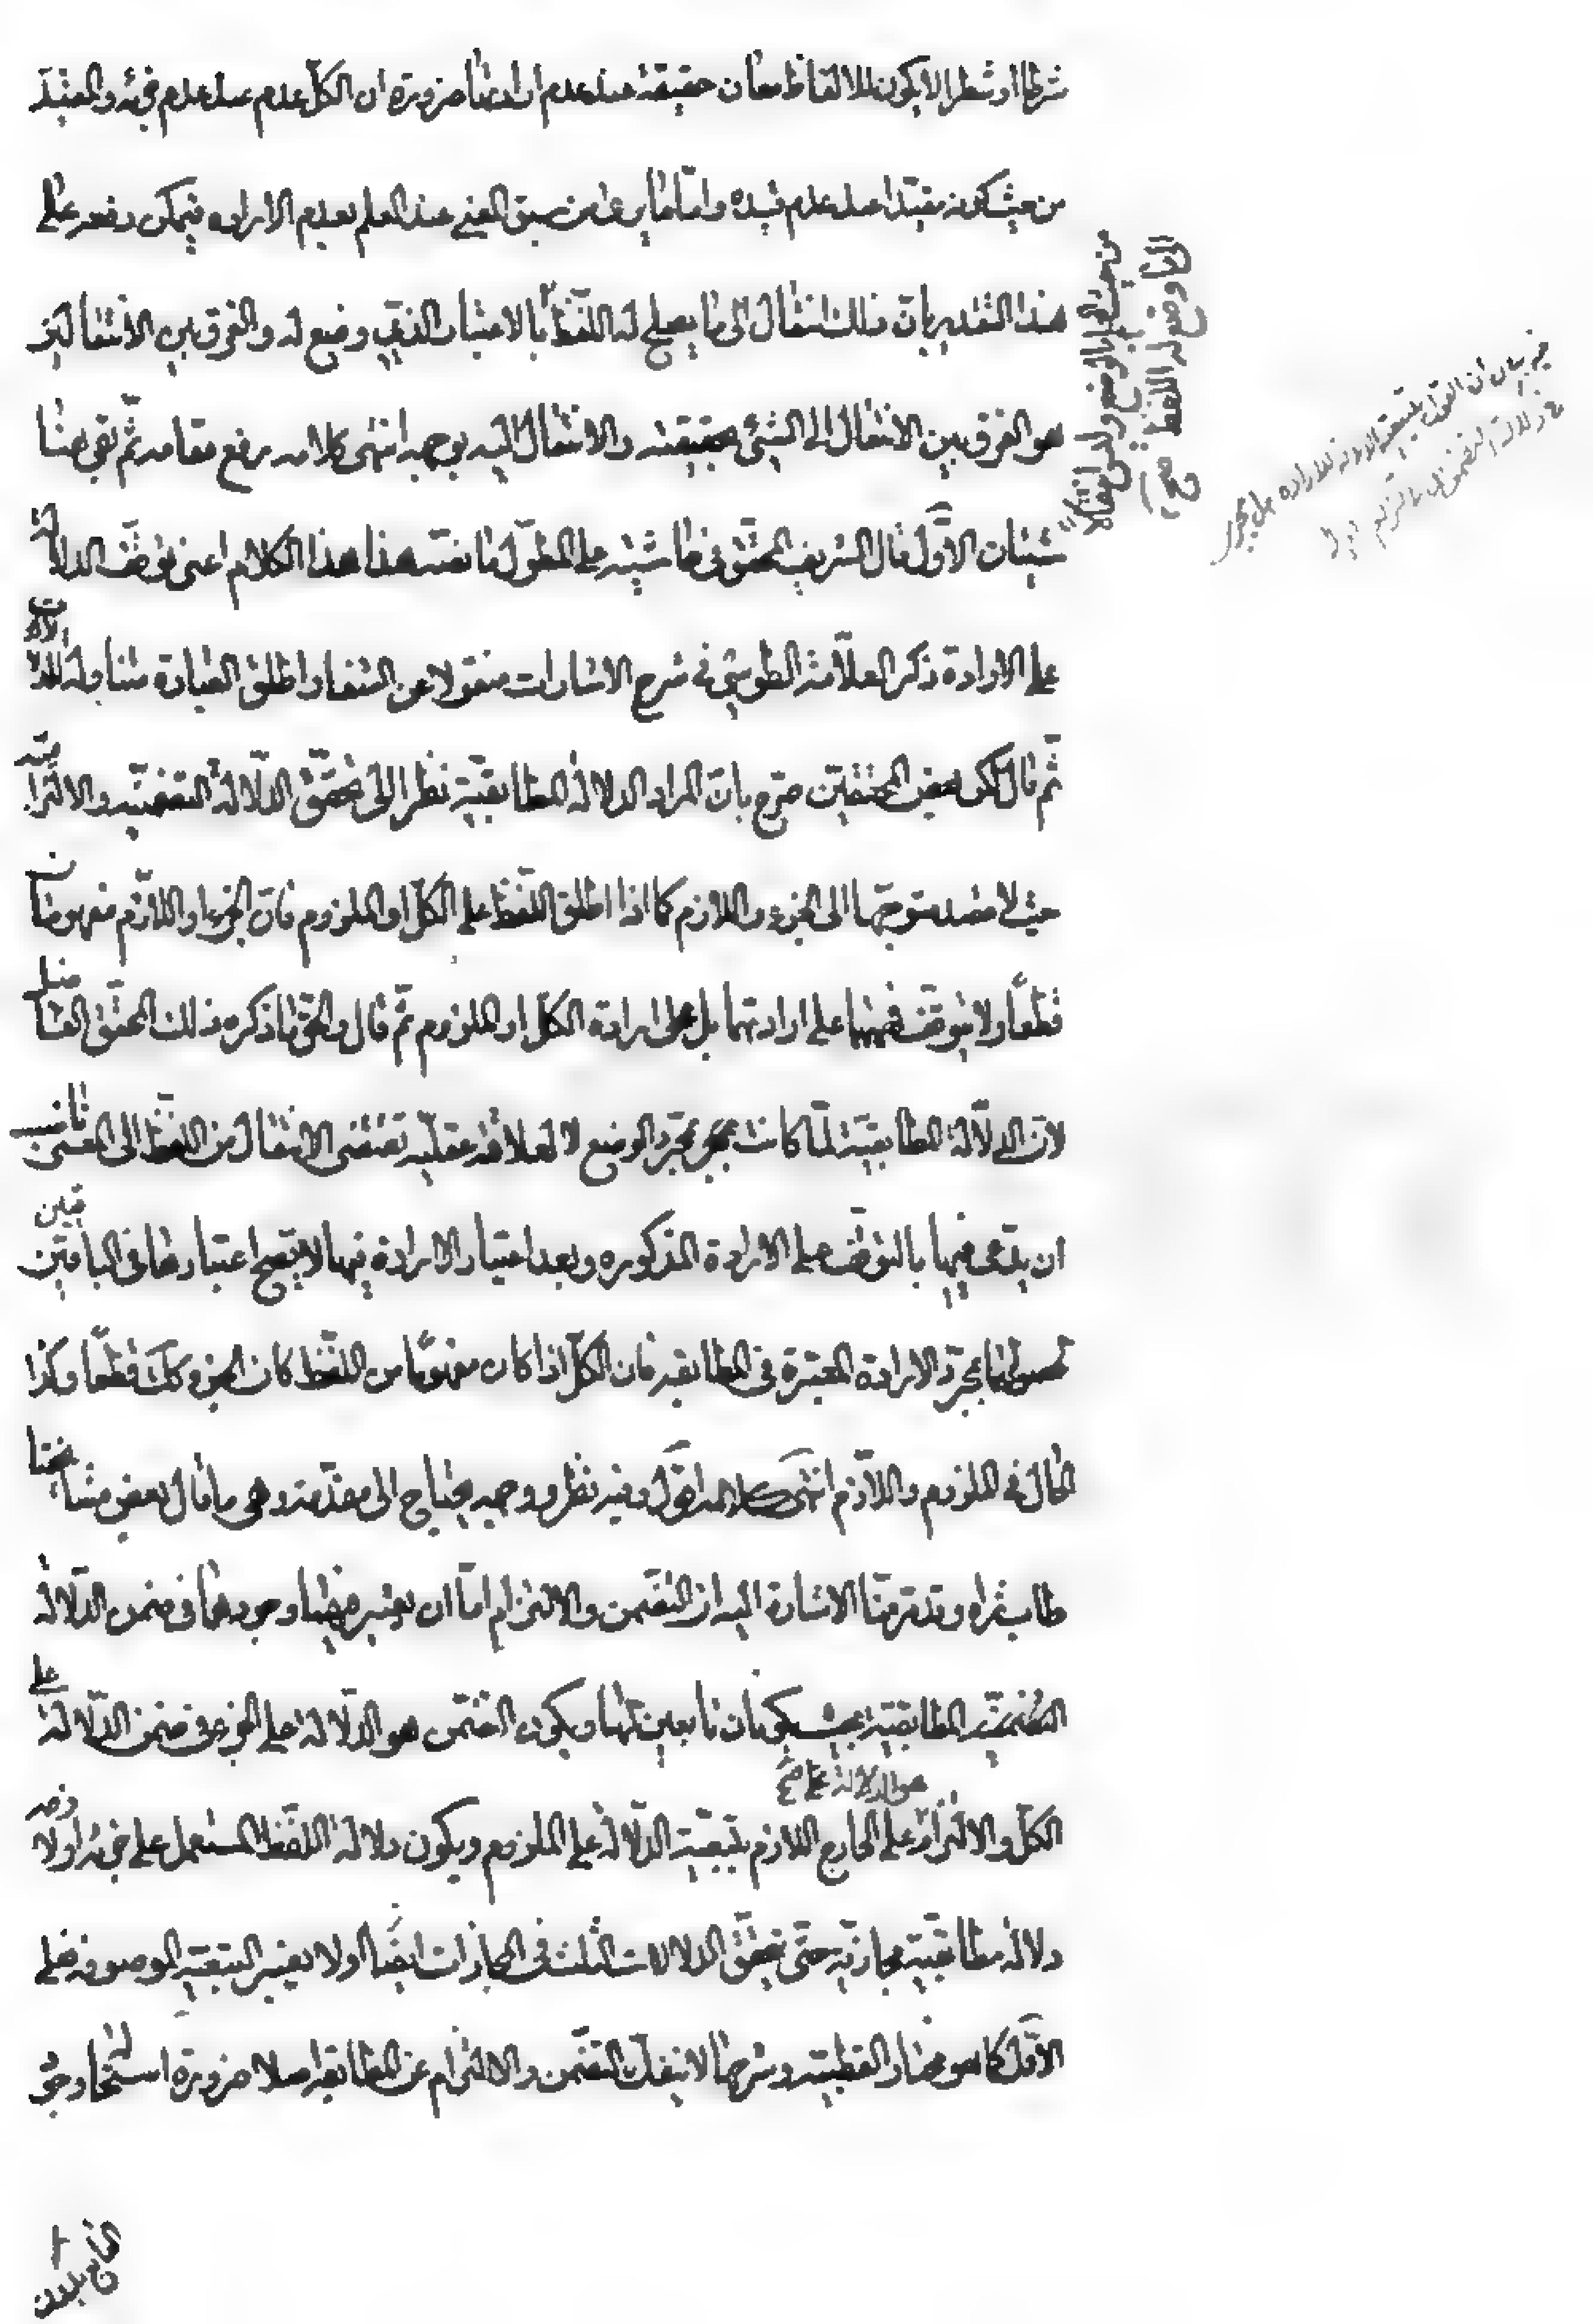 شرطا او شطرا لا يكون للالفاظ معان حقيقة عند عدم ارادتها ضرورة ان الكل عدم عند عدم جزئه والمقيد
من حيث كونه مقيدا عند عدم قيده واما ما يرى من سبق المعنى عند العلم بعدم الارادة فيمكن دفعه على
هذا التقدير بان ذلك انتقال الى ما يصلح له اللفظ بالاعتبار الذي وضع له والفرق بين الانتقالين
هو الفرق بين الانتقال الى الشيئ بحقيقته والانتقال اليه بوجه انتهى كلامه رفع مقامه ثم بقى هنا
شيئان الاول قال الشريف المحقق في حاشيته على المطول ما نصه هذا هذا الكلام اعنى توقف الدلالة
على الارادة ذكر العلامة الطوسي في شرح الاشارات منقولا عن الشفا واطلق العبارة متناولة للدلالات
ثم قال لكن بعض المحققين صرح بان المراد الدلالة المطابقية نظرا الى تحقق الدلالة التضمنية والالتزامية
حيث لا قصد متوجها الى الجزء واللازم كما اذا اطلق اللفظ على الكل او الملزوم فان الجزء او اللازم مفهومان
قطعا ولا يتوقف فهمهما على ارادتهما بل على ارادة الكل او الملزوم ثم قال والحق ما ذكره ذلك المحقق الفاضل
لان الدلالة المطابقية لما كانت بمجرد الوضع لا لعلاقة عقلية تقتضى الانتقال من اللفظ الى المعنى ناسب
ان يدعى فيها بالتوقف على الارادة المذكوره وبعد اعتبار الارادة فيها لا يتضح اعتبارها في الباقيتين
لحصولهما بمجرد الارادة المعتبرة في المطابقه فان الكل اذا كان مفهوما من اللفظ كان الجزء كك قطعا وكذا
الحال في الملزوم واللازم انتهى كلامه اقول وفيه نظر ووجهه يحتاج الى مقدمة وهي ما قال بعض مشايخنا
طاب ثراه وقد مر منا الاشارة اليه ان التضمن والالتزام اما ان يعتبر فيهما وجودهما في ضمن الدلالة
المطابقية بحيث يكونان تابعين لها ويكون التضمن هو الدلالة على الجزء في ضمن الدلالة على
الكل والالتزام هو الدلالة على الخارج اللازم بتبعية الدلالة على الملزوم ويكون دلالة اللفظ المستعمل على جزئه او لازمه
دلالة مطابقية مجازية حتى يتحقق الدلالات الثلث في المجازات ايضا او لا يعتبر التبعية الموصوفة فعلى
الاول كما هو مختار القطبية وشرحها لا ينفك التضمن والالتزام عن المطابقة اصلا ضرورة استحالة وجود
من حيث العلم بالوضع وليس انتقالا
الى ما وضع له اللفظ صح